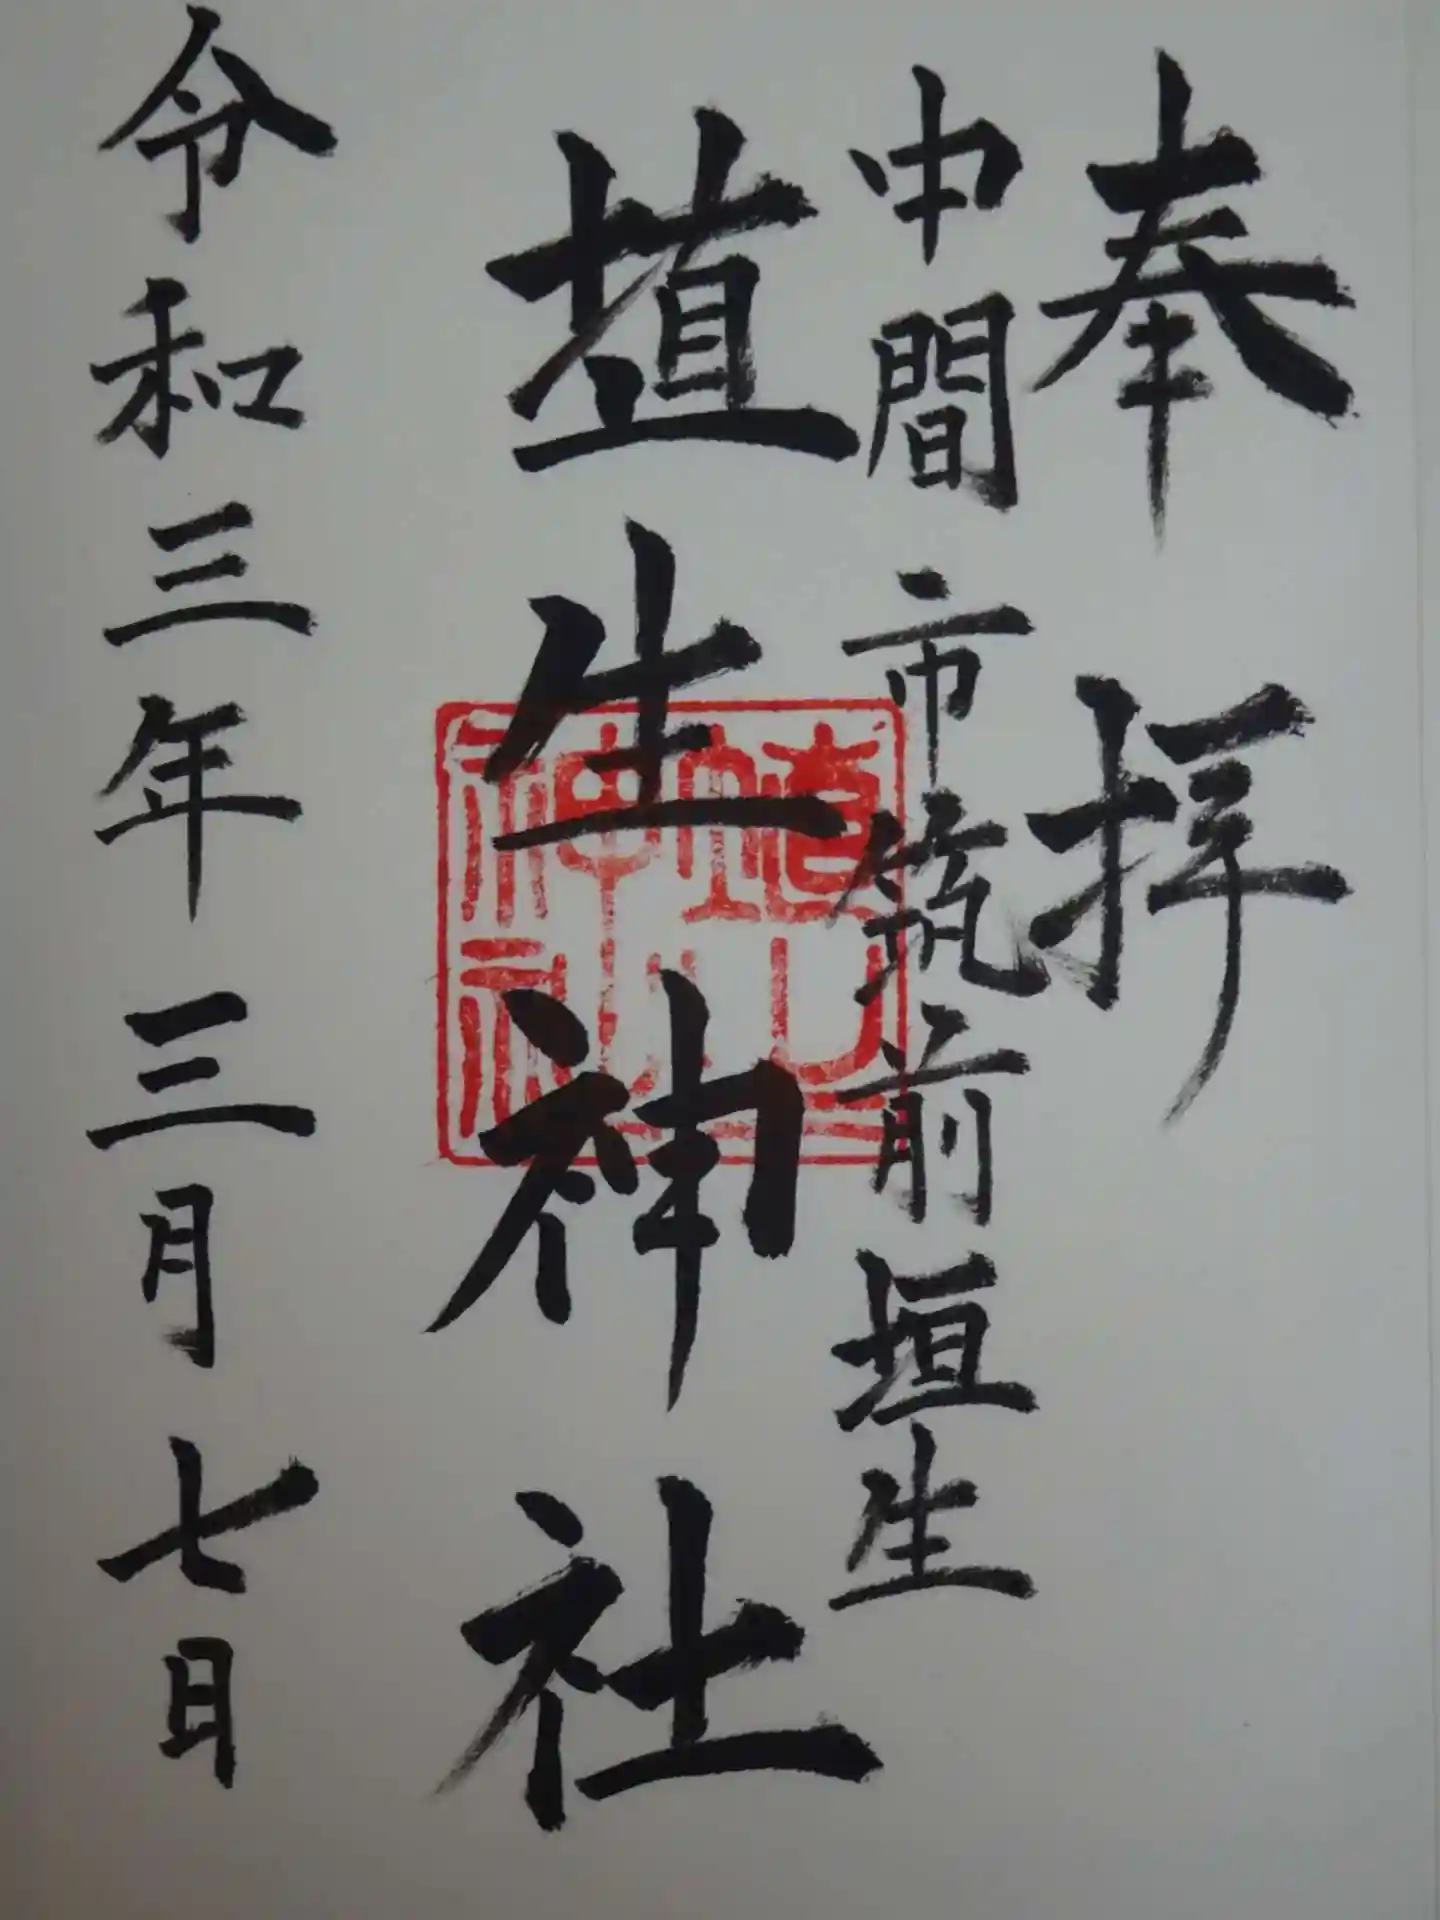 奉拝
中間市筑前垣生
埴生神社
埴生神社
令和三年三月七日